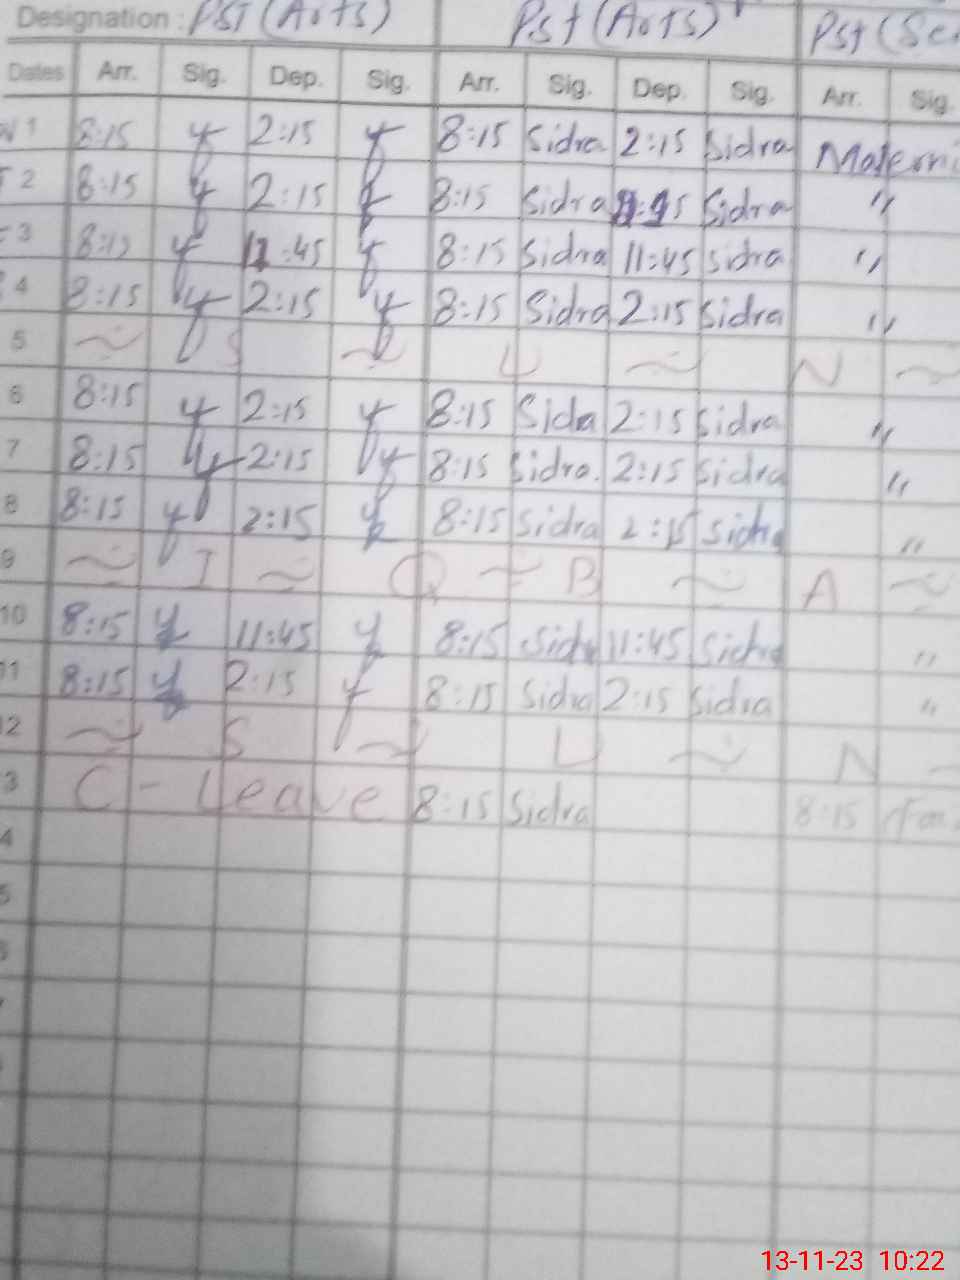 Designation: PST (Arts) Pst (Arts) Pst (Sc.
Dates Arr. Sig. Dep. Sig. Arr. Sig. Dep. Sig. Arr. Sig.
1 8:15 2:15 8:15 Sidra 2:15 Sidra Materni
2 8:15 2:15 8:15 Sidra Sidra "
3 8:15 11:45 8:15 Sidra 11:45 Sidra "
4 8:15 2:15 8:15 Sidra 2:15 Sidra "
5 ~ S ~ U ~ N ~
6 8:15 2:15 8:15 Sida 2:15 Sidra "
7 8:15 2:15 8:15 Sidra. 2:15 Sidra "
8 8:15 2:15 8:15 Sidra 2:15 Sidra "
9 ~ I ~ Q ~ B ~ A ~
10 8:15 11:45 8:15 Sidra 11:45 Sidra "
11 8:15 2:15 8:15 Sidra 2:15 Sidra "
12 ~ S ~ U ~ N ~
3 C - Leave 8:15 Sidra 8:15
4
5
13-11-23 10:22